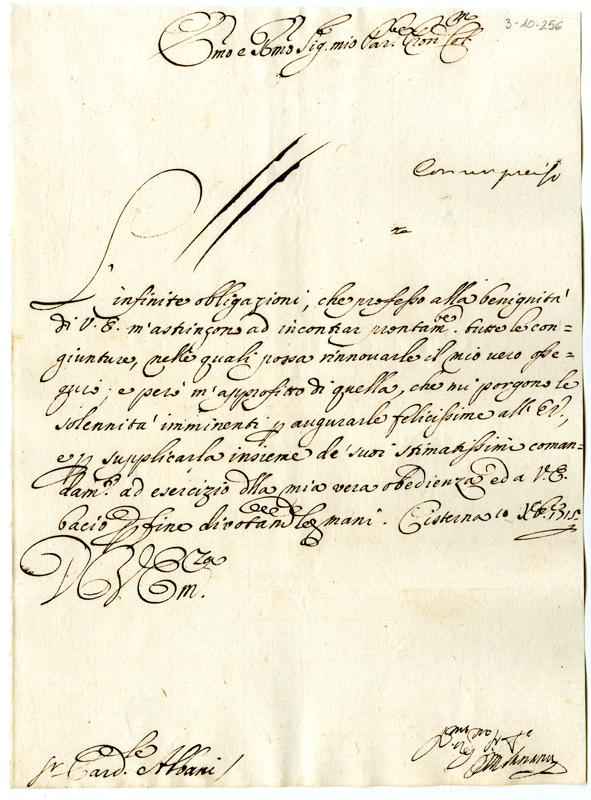 3-10-256
Emo e Rmo Sig. mio
L'infinite obligazioni, che professo alla benignità
di V. E. m'astringon ad incontrar prontam.te tutte le con=
giunture, nelle quali possa rinnovarle il mio vero osse=
quio; e però m'approfitto di quella, che mi porgono le
solennità imminenti p augurarle felicissime all' EV,
e p supplicarla insieme de' suoi stimatissimi coman=
dam.ti ad esercizio della mia vera obedienza ed a V. E.
bacio p fine divotam.te le mani. Cisterna 10
D V Em.za
Sr Card.le Albani